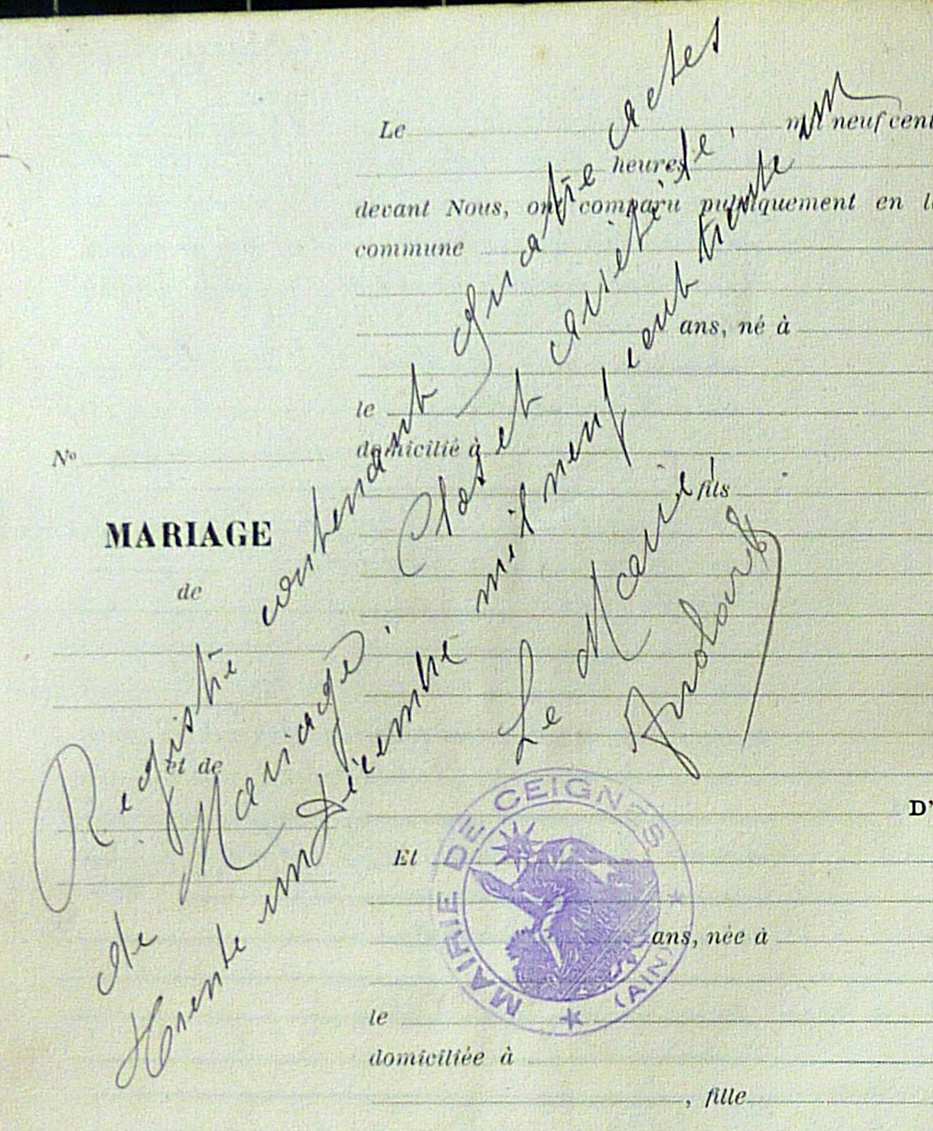 Le mil neuf cent
heures
devant Nous, ont comparu publiquement en l
commune
ans, né à
le
domicilié à
fils
Nº
MARIAGE
de
et de
D'
Et
ans, née à
le
domiciliée à
, fille
Registre contenant quatre actes
de Mariage. Clos et arrêté le,
trente un Décembre mil neuf cent trente un
Le Maire,
MAIRIE DE CEIGNES
(AIN)